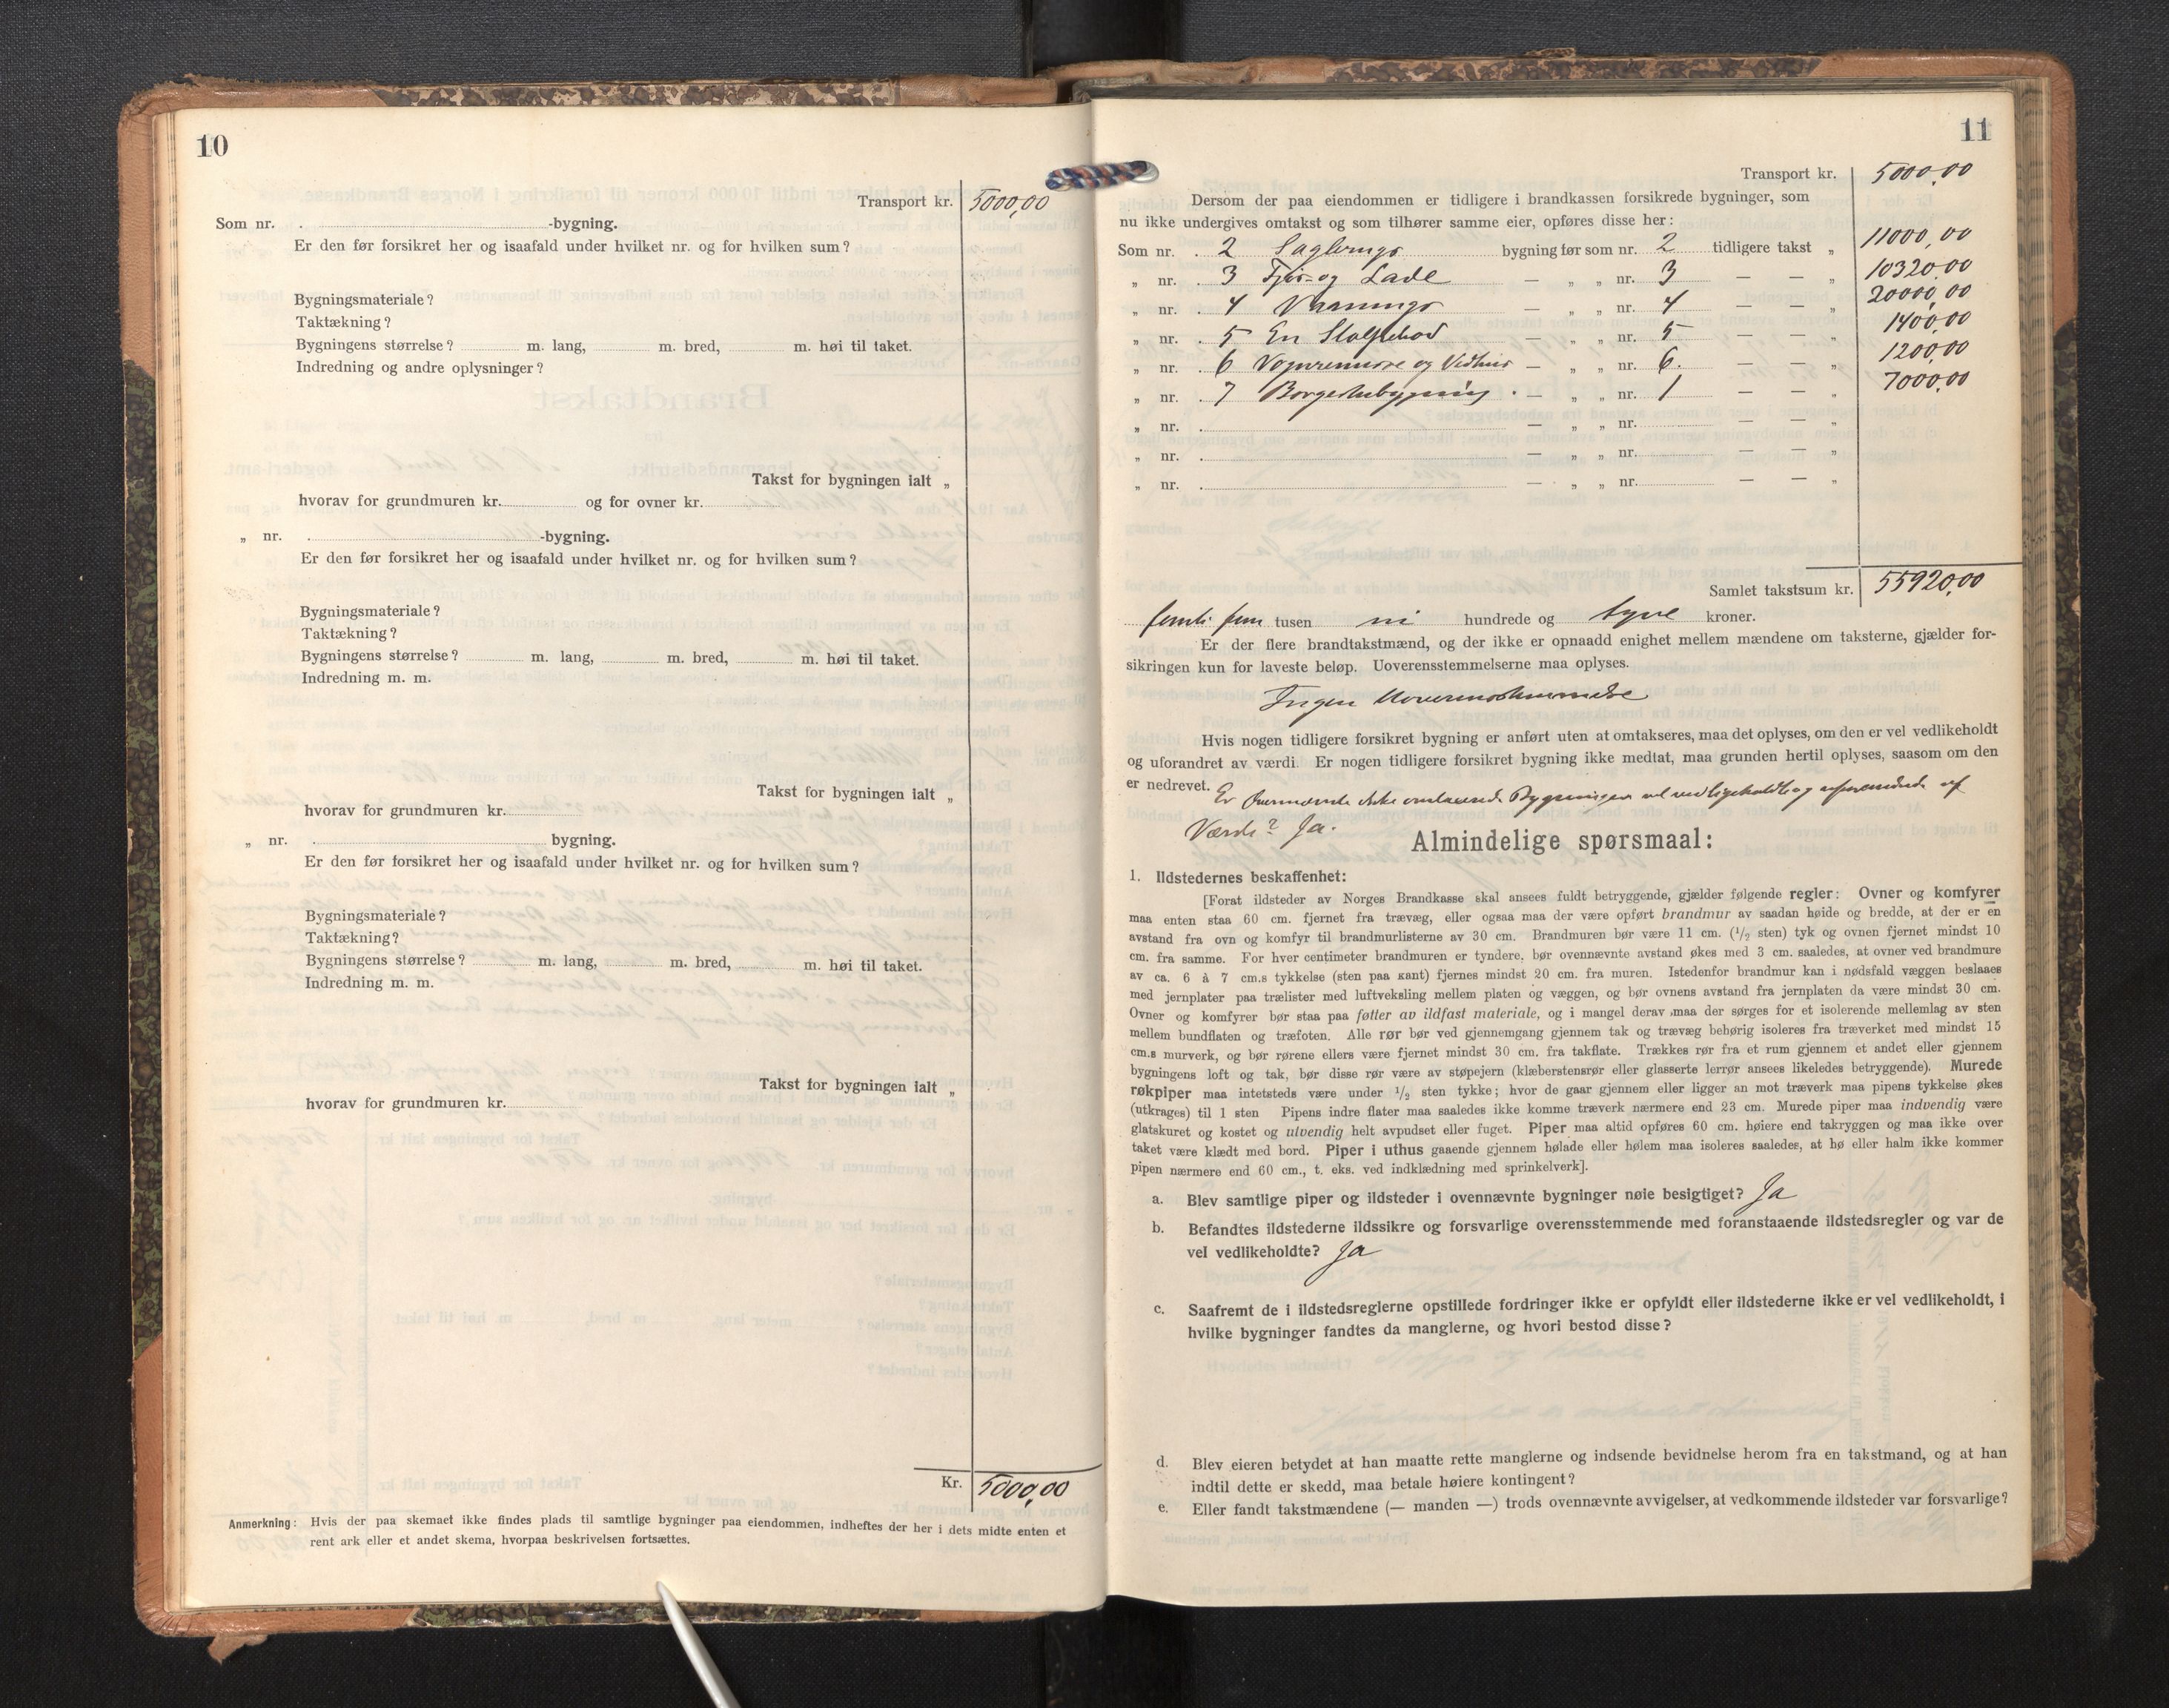 10
Transport kr. 5000,00
Som nr. . -bygning.
Er den før forsikret her og isaafald under hvilket nr. og for hvilken sum?
Bygningsmateriale?
Taktækning?
Bygningens størrelse? m. lang, m. bred, m. høi til taket.
Indredning og andre oplysninger?
Takst for bygningen ialt „
hvorav for grundmuren kr. og for ovner kr.
„ nr. . -bygning.
Er den før forsikret her og isaafald under hvilket nr. og for hvilken sum?
Bygningsmateriale?
Taktækning?
Bygningens størrelse? m. lang, m. bred, m. høi til taket.
Indredning m. m.
Takst for bygningen ialt „
hvorav for grundmuren kr.
„ nr. . bygning.
Er den før forsikret her og isaafald under hvilket nr. og for hvilken sum?
Bygningsmateriale?
Taktækning?
Bygningens størrelse? m. lang, m. bred, m. høi til taket.
Indredning m. m.
Takst for bygningen ialt „
hvorav for grundmuren kr.
Kr. 5000,00
Anmerkning: Hvis der paa skemaet ikke findes plads til samtlige bygninger paa eiendommen, indheftes der her i dets midte enten et
rent ark eller et andet skema, hvorpaa beskrivelsen fortsættes.
11
Transport kr. 5000,00
Dersom der paa eiendommen er tidligere i brandkassen forsikrede bygninger, som
nu ikke undergives omtakst og som tilhører samme eier, opføres disse her:
Som nr. . 2 bygning før som nr. 2 tidligere takst „ 11000,00
„ nr. . 3 Fjøs- og Lade — „ „ nr. 3 — — „ 10320,00
„ nr. . 4 Vaanings — „ „ nr. 4 — — „ 20000,00
„ nr. . 5 En — „ „ nr. 5 — — „ 1400,00
„ nr. . 6 og Vedhus — „ „ nr. 6. — — „ 1200,00
„ nr. . 7 Borgestuebygning — „ „ nr. 1 — — „ 7000,00
„ nr. . — „ „ nr. — — „
„ nr. . — „ „ nr. — — „
„ nr. . — „ „ nr. — — „
Samlet takstsum kr. 55920,00
femti fem tusen ni hundrede og tyve kroner.
Er der flere brandtakstmænd, og der ikke er opnaadd enighet mellem mændene om taksterne, gjælder for-
sikringen kun for laveste beløp. Uoverensstemmelserne maa oplyses.
Ingen Uoverensstemmelse
Hvis nogen tidligere forsikret bygning er anført uten at omtakseres, maa det oplyses, om den er vel vedlikeholdt
og uforandret av værdi. Er nogen tidligere forsikret bygning ikke medtat, maa grunden hertil oplyses, saasom om den
er nedrevet. Er Ovennævnte ikke omtaxerede Bygninger vel vedligeholdte og uforandrede af
Værdi? Ja.
Almindelige spørsmaal:
1. Ildstedernes beskaffenhet:
[Forat ildsteder av Norges Brandkasse skal ansees fuldt betryggende, gjælder følgende regler: Ovner og komfyrer
maa enten staa 60 cm. fjernet fra trævæg, eller ogsaa maa der være opført brandmur av saadan høide og bredde, at der er en
avstand fra ovn og komfyr til brandmurlisterne av 30 cm. Brandmuren bør være 11 cm. (1/2 sten) tyk og ovnen fjernet mindst 10
cm. fra samme. For hver centimeter brandmuren er tyndere, bør ovennævnte avstand økes med 3 cm. saaledes, at ovner ved brandmure
av ca. 6 à 7 cm.s tykkelse (sten paa kant) fjernes mindst 20 cm. fra muren. Istedenfor brandmur kan i nødsfald væggen beslaaes
med jernplater paa trælister med luftveksling mellem platen og væggen, og bør ovnens avstand fra jernplaten da være mindst 30 cm.
Ovner og komfyrer bør staa paa føtter av ildfast materiale, og i mangel derav maa der sørges for et isolerende mellemlag av sten
mellem bundflaten og træfoten. Alle rør bør ved gjennemgang gjennem tak og trævæg behørig isoleres fra træverket med mindst 15
cm.s murverk, og bør rørene ellers være fjernet mindst 30 cm. fra takflate. Trækkes rør fra et rum gjennem et andet eller gjennem
bygningens loft og tak, bør disse rør være av støpejern (klæberstensrør eller glasserte lerrør ansees likeledes betryggende). Murede
røkpiper maa intetsteds være under 1/2 sten tykke; hvor de gaar gjennem eller ligger an mot træverk maa pipens tykkelse økes
(utkrages) til 1 sten Pipens indre flater maa saaledes ikke komme træverk nærmere end 23 cm. Murede piper maa indvendig være
glatskuret og kostet og utvendig helt avpudset eller fuget. Piper maa altid opføres 60 cm. høiere end takryggen og maa ikke over
taket være klædt med bord. Piper i uthus gaaende gjennem hølade eller hølem maa isoleres saaledes, at hø eller halm ikke kommer
pipen nærmere end 60 cm., t. eks. ved indklædning med sprinkelverk].
a. Blev samtlige piper og ildsteder i ovennævnte bygninger nøie besigtiget? Ja
b. Befandtes ildstederne ildssikre og forsvarlige overensstemmende med foranstaaende ildstedsregler og var de
vel vedlikeholdte? Ja
c. Saafremt de i ildstedsreglerne opstillede fordringer ikke er opfyldt eller ildstederne ikke er vel vedlikeholdt, i
hvilke bygninger fandtes da manglerne, og hvori bestod disse?
d. Blev eieren betydet at han maatte rette manglerne og indsende bevidnelse herom fra en takstmand, og at han
indtil dette er skedd, maa betale høiere kontingent?
e. Eller fandt takstmændene (— manden —) trods ovennævnte avvigelser, at vedkommende ildsteder var forsvarlige?